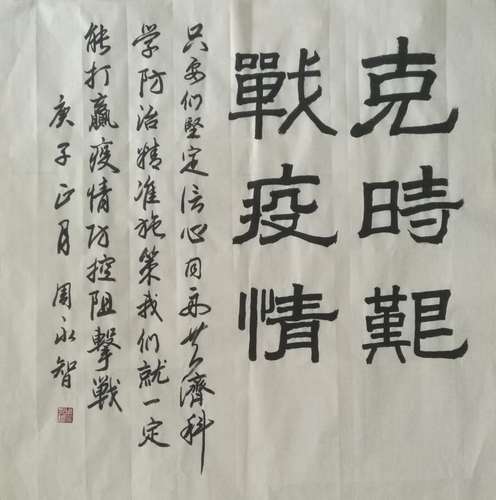 克時艱
戰疫情
只要们堅定信心同舟共濟科
学防治精准施策我们就一定
能打贏疫情防控阻擊戦
庚子正月周永智